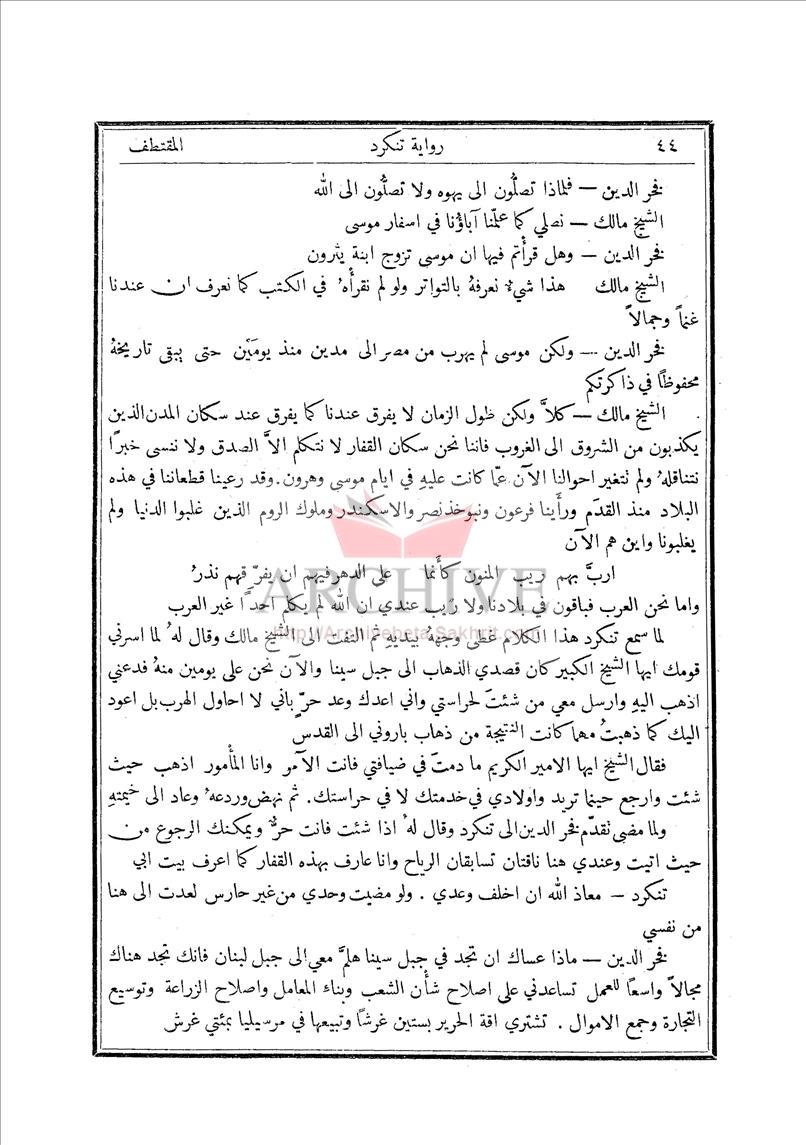 ٤٤ رواية تنكرد المقتطف
فخر الدين — فلماذا تصلُّون الى يهوه ولا تصلُّون الى الله
الشيخ مالك — نصلي كما علّمنا آباؤنا في اسفار موسى
فخر الدين — وهل قرأتم فيها ان موسى تزوج ابنة يثرون
الشيخ مالك هذا شيءٌ نعرفهُ بالتواتر ولو لم نقرأْهُ في الكتب كما نعرف ان عندنا
غنماً وجمالاً
فخر الدين — ولكن موسى لم يهرب من مصر الى مدين منذ يومَين حتى يبقى تاريخهُ
محفوظاً في ذاكرتكم
الشيخ مالك — كلاَّ ولكن طول الزمان لا يفرق عندنا كما يفرق عند سكان المدن الذين
يكذبون من الشروق الى الغروب فاننا نحن سكان القفار لا نتكلم الاَّ الصدق ولا ننسى خبراً
نتناقلهُ ولم نتغير احوالنا الآن عمَّا كانت عليهِ في ايام موسى وهرون. وقد رعينا قطعاننا في هذه
البلاد منذ القدَم ورأَينا فرعون ونبوخذنصر والاسكندر وملوك الروم الذين غلبوا الدنيا ولم
يغلبونا واين هم الآن
اربَّ بهم ريب المنون كأَنما على الدهر فيهم ان يفرّقهم نذرُ
ARCHIVE
واما نحن العرب فباقون في بلادنا ولا رَيب عندي ان الله لم يكلم احداً غير العرب
http://Archivebeta.Sakhrit.com
لما سمع تنكرد هذا الكلام غطى وجههُ بيديهِ ثم التفت الى الشيخ مالك وقال لهُ لما اسرني
قومك ايها الشيخ الكبير كان قصدي الذهاب الى جبل سينا والآن نحن على يومين منهُ فدعني
اذهب اليهِ وارسل معي من شئتَ لحراستي واني اعدك وعد حرّ باني لا احاول الهرب بل اعود
اليك كما ذهبتُ مهما كانت النتيجة من ذهاب باروني الى القدس
فقال الشيخ ايها الامير الكريم ما دمتَ في ضيافتي فانت الآمر وانا المأْمور اذهب حيث
شئت وارجع حينما تريد واولادي في خدمتك لا في حراستك. ثم نهض وردعهُ وعاد الى خيمتهِ
ولما مضى تقدَّم فخر الدين الى تنكرد وقال لهُ اذا شئت فانت حرٌّ ويمكنك الرجوع من
حيث اتيت وعندي هنا ناقتان تسابقان الرياح وانا عارف بهذه القفار كما اعرف بيت ابي
تنكرد — معاذ الله ان اخلف وعدي . ولو مضيت وحدي من غير حارس لعدت الى هنا
من نفسي
فخر الدين — ماذا عساك ان تجد في جبل سينا هلمَّ معي الى جبل لبنان فانك تجد هناك
مجالاً واسعاً للعمل تساعدني على اصلاح شأْن الشعب وبناء المعامل واصلاح الزراعة وتوسيع
التجارة وجمع الاموال . تشتري اقة الحرير بستين غرشاً وتبيعها في مرسيليا بمئتي غرش